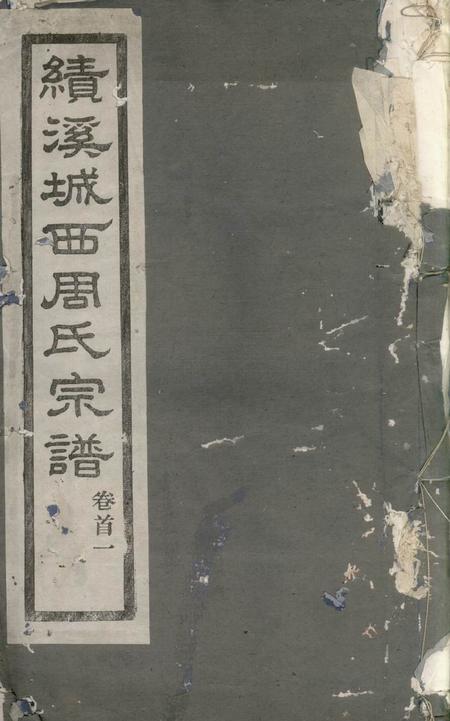 績溪城西周氏宗譜
卷首一